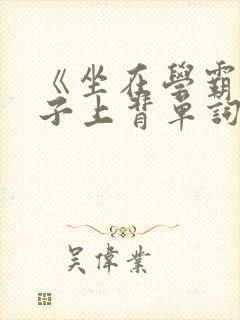 《坐在學霸
子上背單詞
吳偉業